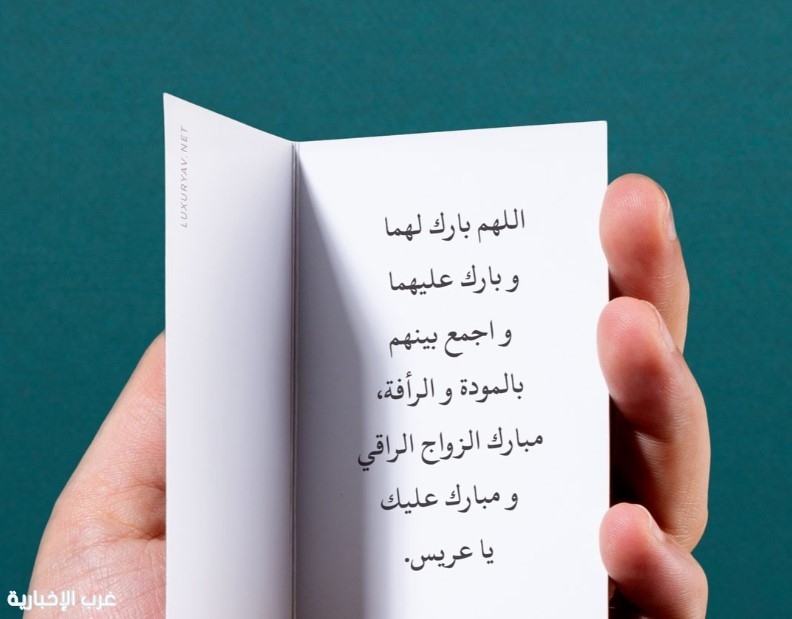 LUXURYAV.NET
اللهم بارك لهما
و بارك عليهما
و اجمع بينهم
بالمودة و الرأفة،
مبارك الزواج الراقي
و مبارك عليك
يا عريس.
غرب الإخبارية